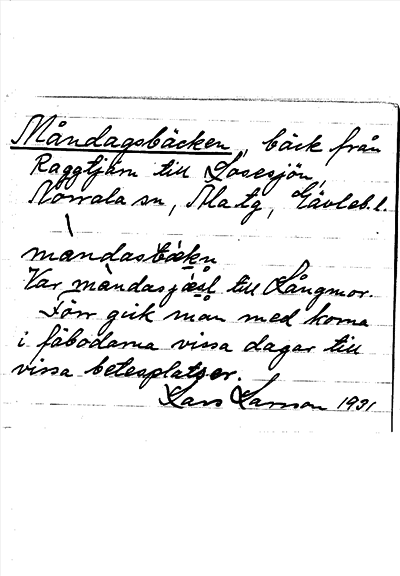 Måndagsbäcken, bäck från
Raggtjärn till Losesjön,
Norrala sn, Ala tg, Gävleb. l.
mándasbækn
Var måndasjæsl till Långmor.
Förr gick man med korna
i fäbodarna vissa dagar till
vissa betesplatser.
Lars Larsson 1931